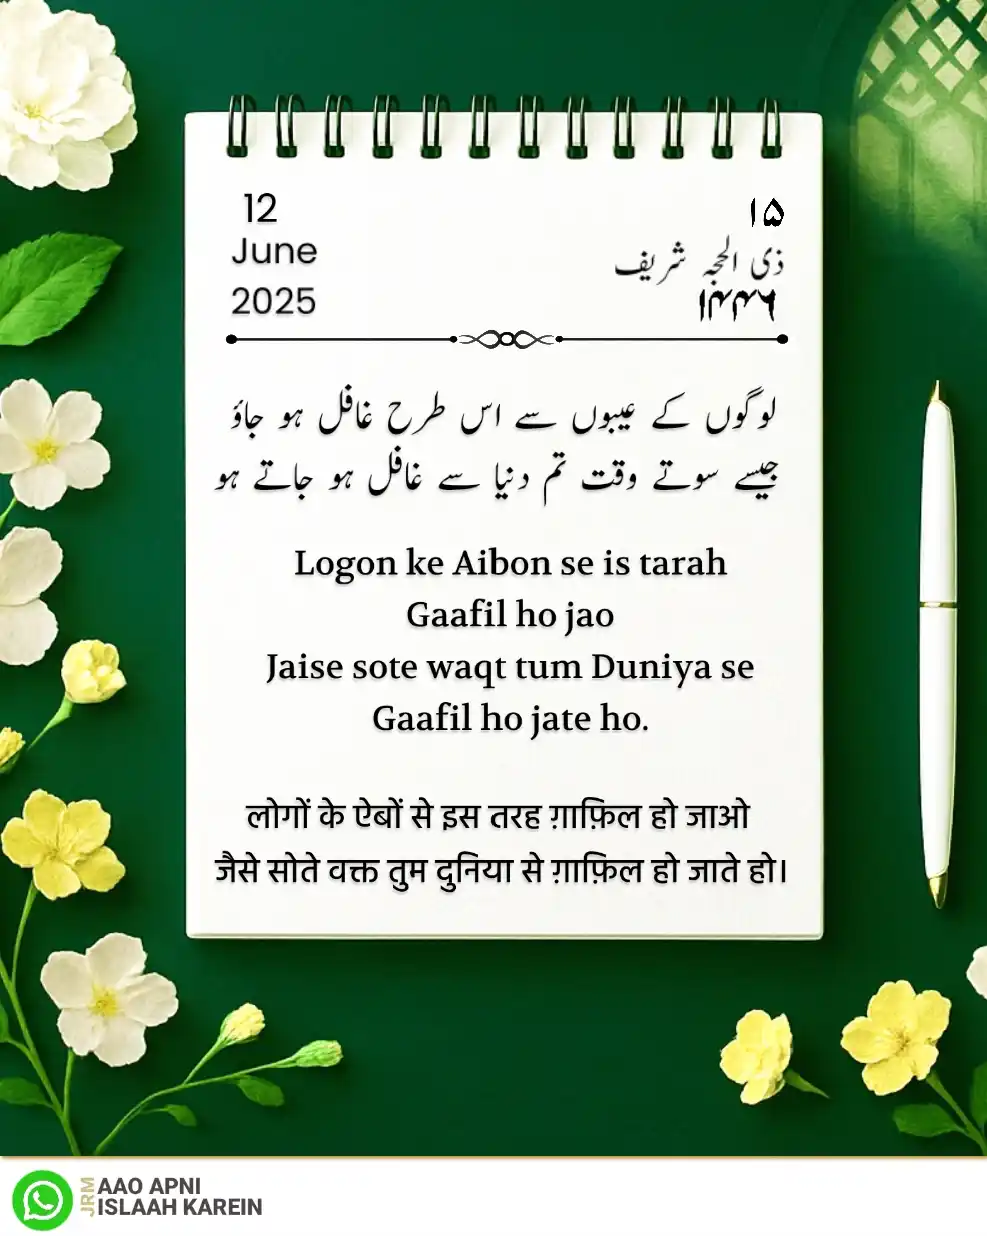 12
June
2025
۱۵
ذی الحجہ شریف
۱۴۴۶
لوگوں کے عیبوں سے اس طرح غافل ہو جاؤ
جیسے سوتے وقت تم دنیا سے غافل ہو جاتے ہو
Logon ke Aibon se is tarah
Gaafil ho jao
Jaise sote waqt tum Duniya se
Gaafil ho jate ho.
लोगों के ऐबों से इस तरह ग़ाफ़िल हो जाओ
जैसे सोते वक्त तुम दुनिया से ग़ाफ़िल हो जाते हो।
JRM
AAO APNI
ISLAAH KAREIN